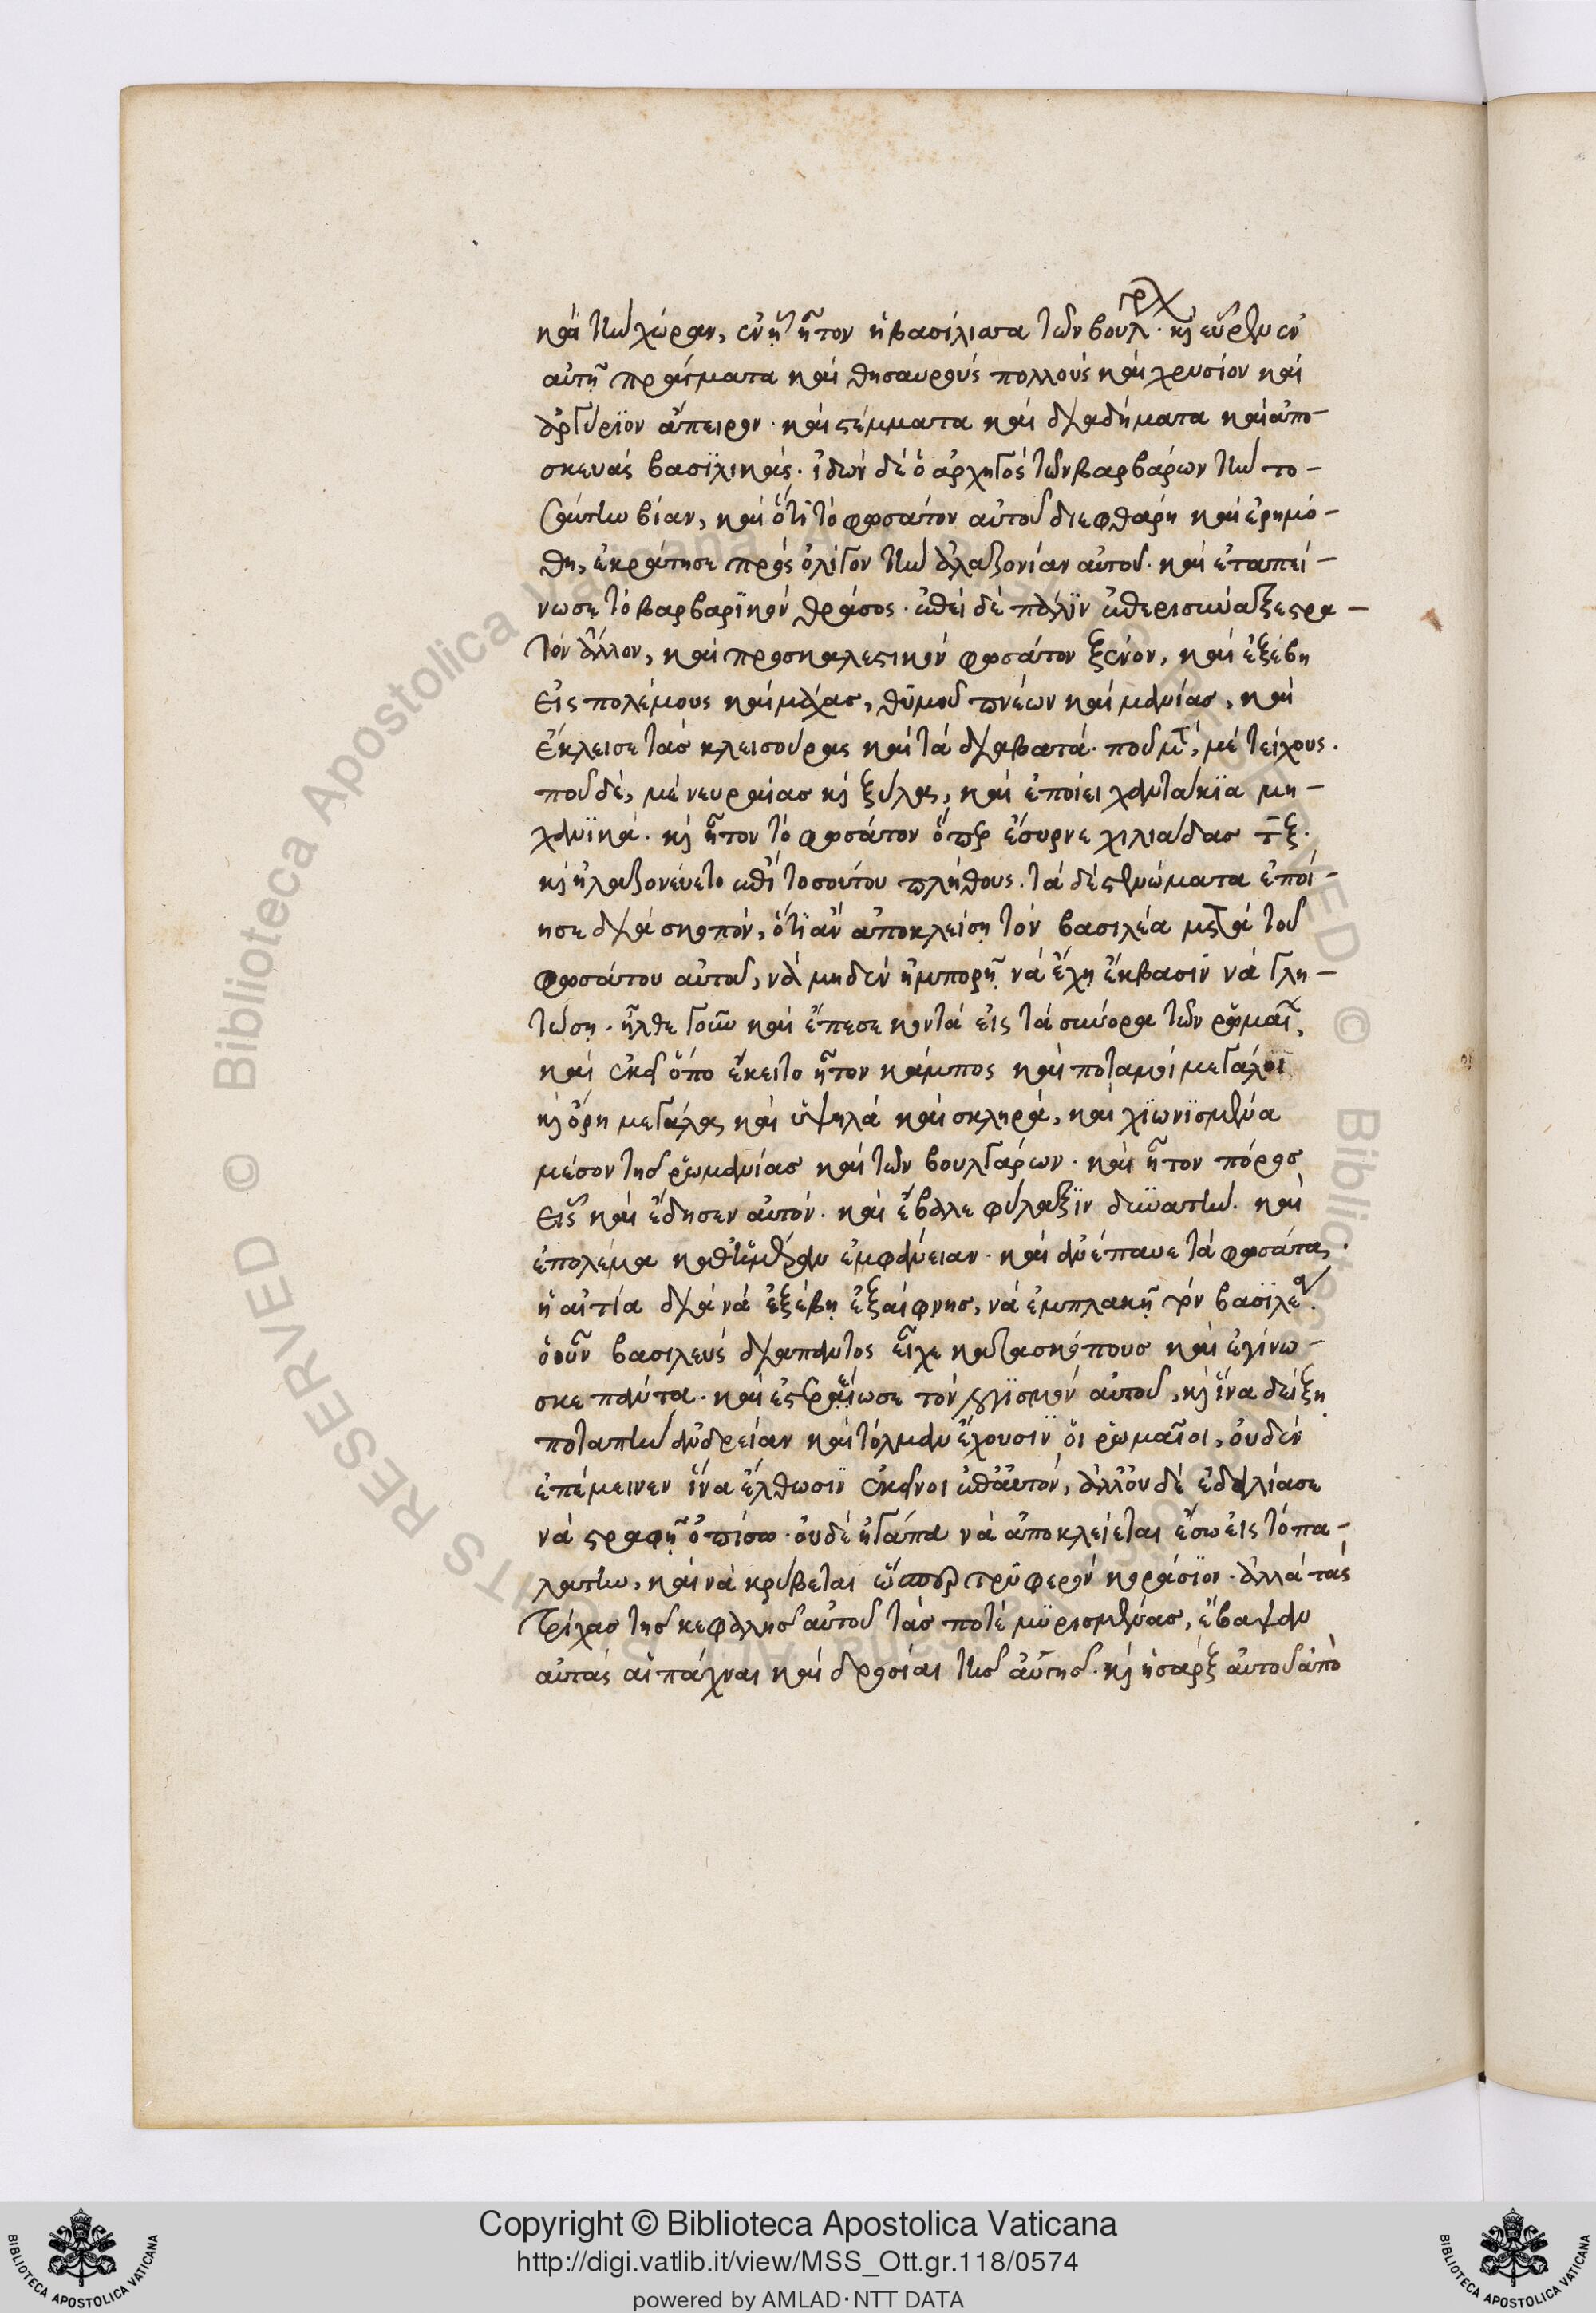 καὶ τὴν χώραν, ἐν ᾗ ἦτον ἡ βασίλισσα τῶν βουλγρ. κὶ εὗρεν ἐν
αὐτῇ πράγματα καὶ θησαυροὺς πολλοὺς καὶ χρυσίον καὶ
ἀργύριον ἄπειρον. καὶ στέμματα καὶ διαδήματα καὶ ἀπο-
σκευὰς βασιλικάς. ἰδὼν δὲ ὁ ἀρχηγὸς τῶν βαρβάρων τὴν το-
σαύτην βίαν, καὶ ὅτι τὸ φοσάτον αὐτοῦ διεφθάρη καὶ ἐρημό-
θη, ἐκράτησε πρὸς ὀλίγον τὴν ἀλαζονίαν αὐτοῦ. καὶ ἐταπεί-
νωσε τὸ βαρβαρικὸν θράσος. ἐπεὶ δὲ πάλιν ἐπερισύναξε στρα-
τὸν ἄλλον, καὶ προσκαλεστικὸν φοσάτον ξένον, καὶ ἐξέβη
εἰς πολέμους καὶ μάχας, θυμοῦ πνέων καὶ μανίας, καὶ
ἔκλεισε τὰς κλεισούρας καὶ τὰ διαβατά. ποῦ μὲν, μὲ τείχους.
ποῦ δὲ, μὲ νευραίας κὶ ξύλας, καὶ ἐποίει χαντάκια μη-
χανικά. κὶ ἦτον τὸ φοσάτον ὅπερ ἔσυρνε χιλιάδας τξ.
κὶ ἠλαζονεύετο ἐπὶ τοσούτου πλήθους. τὰ δὲ στενώματα ἐποί-
ησε διὰ σκοπὸν, ὅτι ἂν ἀποκλείσῃ τὸν βασιλέα μετὰ τοῦ
φοσάτου αὐτοῦ, νὰ μηδὲν ἠμπορῇ νὰ ἔχῃ ἔκβασιν νὰ γλη-
τώσῃ. ἦλθε γοῦν καὶ ἔπεσε κοντὰ εἰς τὰ σύνορα τῶν ῥωμαί,
καὶ ἐκεῖ ὅπο ἔκειτο ἦτον κάμπος καὶ ποταμοὶ μεγάλοι
κὶ ὄρη μεγάλα καὶ ὑψηλὰ καὶ σκληρὰ, καὶ χιωνισμένα
μέσον τῆς ῥωμανίας καὶ τῶν βουλγάρων. καὶ ἦτον πόρος
εἷς καὶ ἔδησεν αὐτόν. καὶ ἔβαλε φύλαξιν δυνατήν. καὶ
ἐπολέμα καθ' ἡμέραν ἐμφάνειαν. καὶ ἀνέπαυε τὰ φοσάτα,
ἡ αἰτία διὰ νὰ ἐξέβῃ ἐξαίφνης, νὰ ἐμπλακῇ τὸν βασιλέα.
ὁ οὖν βασιλεὺς διαπαντὸς εἶχε κατασκόπους καὶ ἐγίνω-
σκε πάντα. καὶ ἐστερέωσε τὸν λογισμὸν αὐτοῦ, κὶ ἵνα δείξῃ
ποταπὴν ἀνδρείαν καὶ τόλμαν ἔχουσιν οἱ ῥωμαῖοι, οὐδὲν
ἐπέμεινεν ἵνα ἔλθωσιν ἐκεῖνοι ἐπ' αὐτὸν, ἀλλ' οὐδὲ ἐδειλίασε
νὰ στραφῇ ὀπίσω. οὐδὲ ἠγάπα νὰ ἀποκλείεται ἔσω εἰς τὸ πα-
λάτιν, καὶ νὰ κρύβεται ὥσπερ τρυφερὸν κοράσιον. ἀλλὰ τὰς
τρίχας τῆς κεφαλῆς αὐτοῦ τὰς ποτὲ μυρισμένας, ἔβαψαν
αὐτὰς αἱ πάχναι καὶ δροσίαι τῆς αὐγῆς. κὶ ἡ σάρξ αὐτοῦ ἀπὸ
Copyright © Biblioteca Apostolica Vaticana
http://digi.vatlib.it/view/MSS_Ott.gr.118/0574
powered by AMLAD·NTT DATA